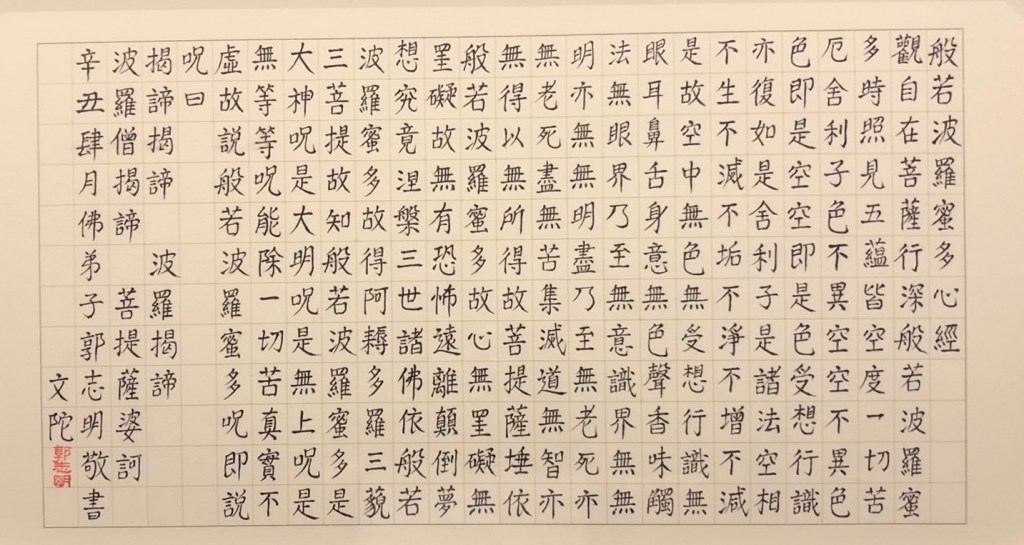 般若波羅蜜多心經
觀自在菩薩行深般若波羅蜜
多時照見五蘊皆空度一切苦
厄舍利子色不異空空不異色
色即是空空即是色受想行識
亦復如是舍利子是諸法空相
不生不滅不垢不淨不增不減
是故空中無色無受想行識無
眼耳鼻舌身意無色聲香味觸
法無眼界乃至無意識界無無
明亦無無明盡乃至無老死亦
無老死盡無苦集滅道無智亦
無得以無所得故菩提薩埵依
般若波羅蜜多故心無罣礙無
罣礙故無有恐怖遠離顛倒夢
想究竟涅槃三世諸佛依般若
波羅蜜多故得阿耨多羅三藐
三菩提故知般若波羅蜜多是
大神呪是大明呪是無上呪是
無等等呪能除一切苦真實不
虛故說般若波羅蜜多呪即說
呪曰
揭諦揭諦 波羅揭諦
波羅僧揭諦 菩提薩婆訶
辛丑肆月佛弟子郭志明敬書
文陀
郭志明